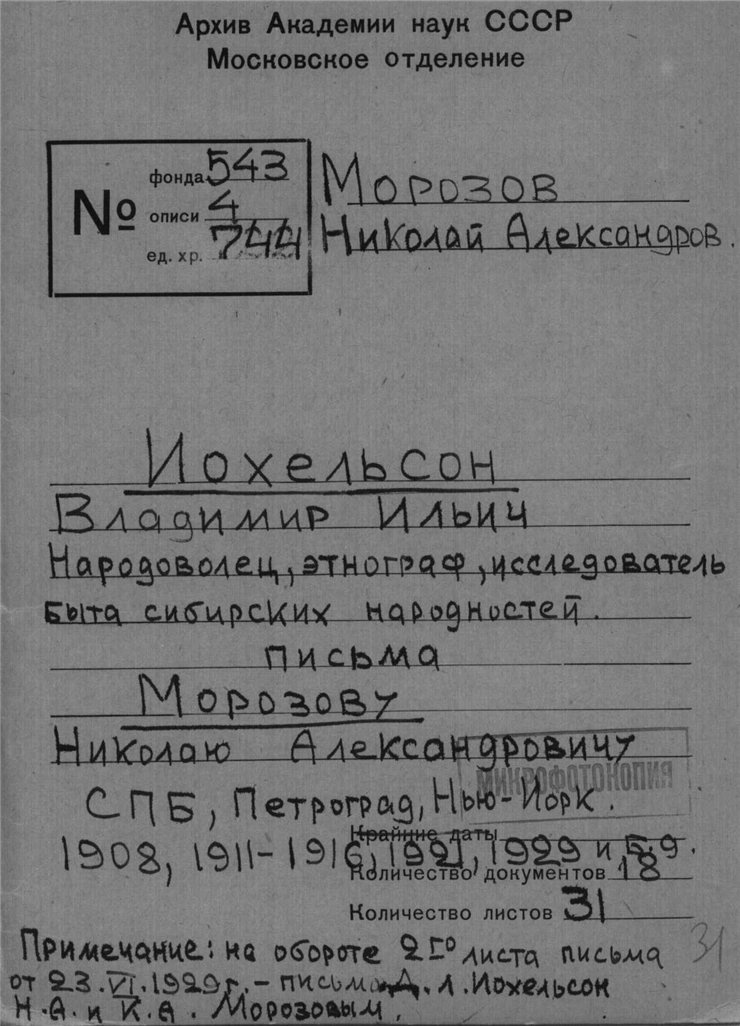 Архив Академии наук СССР
Московское отделение
№
фонда 543
описи 4
ед. хр. 744
Морозов
Николай Александров.
Иохельсон
Владимир Ильич
Народоволец, этнограф, исследователь
быта сибирских народностей.
письма
Морозову
Николаю Александровичу
МИКРОФОТОКОПИЯ
СПБ, Петроград, Нью-Йорк.
Крайние даты
1908, 1911-1916, 1921, 1929 и б.д.
Количество документов 18
Количество листов 31
31
Примечание: на обороте 2го листа письма
от 23.VI.1929г. - письма Д.Л. Иохельсон
Н.А. и К.А. Морозовым.